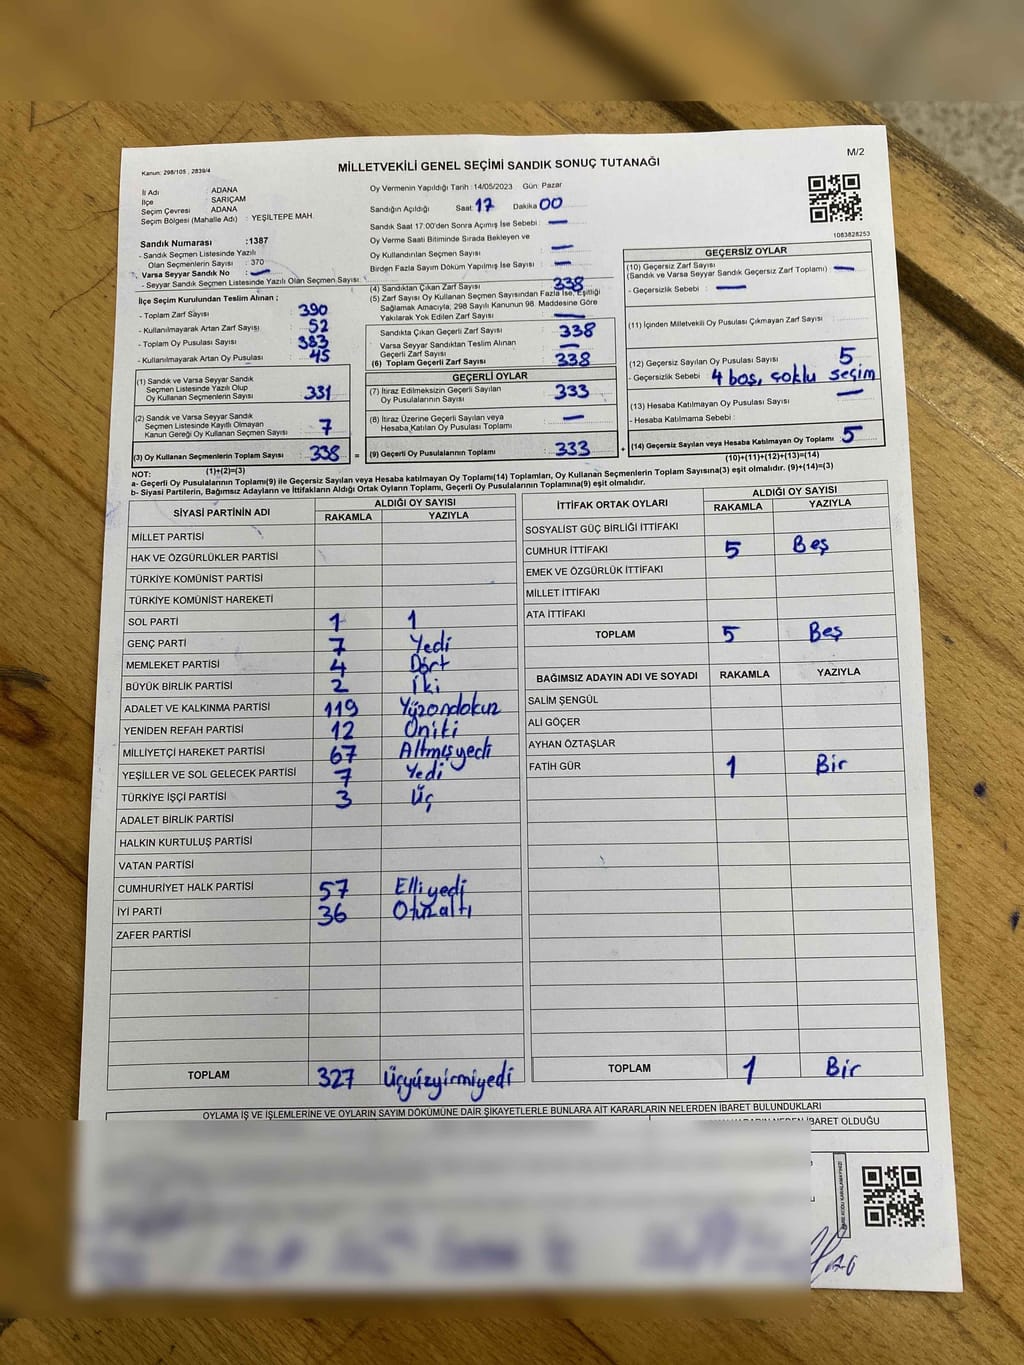 Kanun: 298/105 , 2839/4
MİLLETVEKİLİ GENEL SEÇİMİ SANDIK SONUÇ TUTANAĞI
M/2
İl Adı ADANA
İlçe SARIÇAM
Seçim Çevresi ADANA
Seçim Bölgesi (Mahalle Adı) : YEŞİLTEPE MAH.
Sandık Numarası :1387
- Sandık Seçmen Listesinde Yazılı
Olan Seçmenlerin Sayısı : 370
Varsa Seyyar Sandık No : —
- Seyyar Sandık Seçmen Listesinde Yazılı Olan Seçmen Sayısı :
İlçe Seçim Kurulundan Teslim Alınan ;
- Toplam Zarf Sayısı : 390
- Kullanılmayarak Artan Zarf Sayısı : 52
- Toplam Oy Pusulası Sayısı : 383
- Kullanılmayarak Artan Oy Pusulası : 45
(1) Sandık ve Varsa Seyyar Sandık
Seçmen Listesinde Yazılı Olup
Oy Kullanan Seçmenlerin Sayısı : 331
(2) Sandık ve Varsa Seyyar Sandık
Seçmen Listesinde Kayıtlı Olmayan
Kanun Gereği Oy Kullanan Seçmen Sayısı : 7
(3) Oy Kullanan Seçmenlerin Toplam Sayısı : 338
(1)+(2)=(3)
Oy Vermenin Yapıldığı Tarih :14/05/2023 Gün: Pazar
Sandığın Açıldığı Saat: 17 Dakika 00
Sandık Saat 17.00'den Sonra Açımış İse Sebebi : —
Oy Verme Saati Bitiminde Sırada Bekleyen ve
Oy Kullandırılan Seçmen Sayısı : —
Birden Fazla Sayım Döküm Yapılmış İse Sayısı : —
(4) Sandıktan Çıkan Zarf Sayısı : 338
(5) Zarf Sayısı Oy Kullanan Seçmen Sayısından Fazla İse, Eşitliği
Sağlamak Amacıyla, 298 Sayılı Kanunun 98. Maddesine Göre
Yakılarak Yok Edilen Zarf Sayısı : —
Sandıkta Çıkan Geçerli Zarf Sayısı : 338
Varsa Seyyar Sandıktan Teslim Alınan
Geçerli Zarf Sayısı : —
(6) Toplam Geçerli Zarf Sayısı : 338
GEÇERLİ OYLAR
(7) İtiraz Edilmeksizin Geçerli Sayılan
Oy Pusulalarının Sayısı : 333
(8) İtiraz Üzerine Geçerli Sayılan veya
Hesaba Katılan Oy Pusulası Toplamı : —
= (9) Geçerli Oy Pusulalarının Toplamı : 333
1083828253
GEÇERSİZ OYLAR
(10) Geçersiz Zarf Sayısı
(Sandık ve Varsa Seyyar Sandık Geçersiz Zarf Toplamı) : —
- Geçersizlik Sebebi : —
(11) İçinden Milletvekili Oy Pusulası Çıkmayan Zarf Sayısı :
(12) Geçersiz Sayılan Oy Pusulası Sayısı : 5
- Geçersizlik Sebebi : 4 boş, çoklu seçim
(13) Hesaba Katılmayan Oy Pusulası Sayısı : —
- Hesaba Katılmama Sebebi :
+ (14) Geçersiz Sayılan veya Hesaba Katılmayan Oy Toplamı : 5
(10)+(11)+(12)+(13)=(14)
NOT:
a- Geçerli Oy Pusulalarının Toplamı(9) ile Geçersiz Sayılan veya Hesaba katılmayan Oy Toplamı(14) Toplamları, Oy Kullanan Seçmenlerin Toplam Sayısına(3) eşit olmalıdır. (9)+(14)=(3)
b- Siyasi Partilerin, Bağımsız Adayların ve İttifakların Aldığı Ortak Oyların Toplamı, Geçerli Oy Pusulalarının Toplamına(9) eşit olmalıdır.
SİYASİ PARTİNİN ADI ALDIĞI OY SAYISI
RAKAMLA YAZIYLA
MİLLET PARTİSİ
HAK VE ÖZGÜRLÜKLER PARTİSİ
TÜRKİYE KOMÜNİST PARTİSİ
TÜRKİYE KOMÜNİST HAREKETİ
SOL PARTİ 1 1
GENÇ PARTİ 7 Yedi
MEMLEKET PARTİSİ 4 Dört
BÜYÜK BİRLİK PARTİSİ 2 İki
ADALET VE KALKINMA PARTİSİ 119 Yüzondokuz
YENİDEN REFAH PARTİSİ 12 Oniki
MİLLİYETÇİ HAREKET PARTİSİ 67 Altmışyedi
YEŞİLLER VE SOL GELECEK PARTİSİ 7 Yedi
TÜRKİYE İŞÇİ PARTİSİ 3 Üç
ADALET BİRLİK PARTİSİ
HALKIN KURTULUŞ PARTİSİ
VATAN PARTİSİ
CUMHURİYET HALK PARTİSİ 57 Elliyedi
İYİ PARTİ 36 Otuzaltı
ZAFER PARTİSİ
TOPLAM 327 Üçyüzyirmiyedi
İTTİFAK ORTAK OYLARI ALDIĞI OY SAYISI
RAKAMLA YAZIYLA
SOSYALİST GÜÇ BİRLİĞİ İTTİFAKI
CUMHUR İTTİFAKI 5 Beş
EMEK VE ÖZGÜRLÜK İTTİFAKI
MİLLET İTTİFAKI
ATA İTTİFAKI
TOPLAM 5 Beş
BAĞIMSIZ ADAYIN ADI VE SOYADI RAKAMLA YAZIYLA
SALİM ŞENGÜL
ALİ GÖÇER
AYHAN ÖZTAŞLAR
FATİH GÜR 1 Bir
TOPLAM 1 Bir
OYLAMA İŞ VE İŞLEMLERİNE VE OYLARIN SAYIM DÖKÜMÜNE DAİR ŞİKAYETLERLE BUNLARA AİT KARARLARIN NELERDEN İBARET BULUNDUKLARI
İBARET OLDUĞU